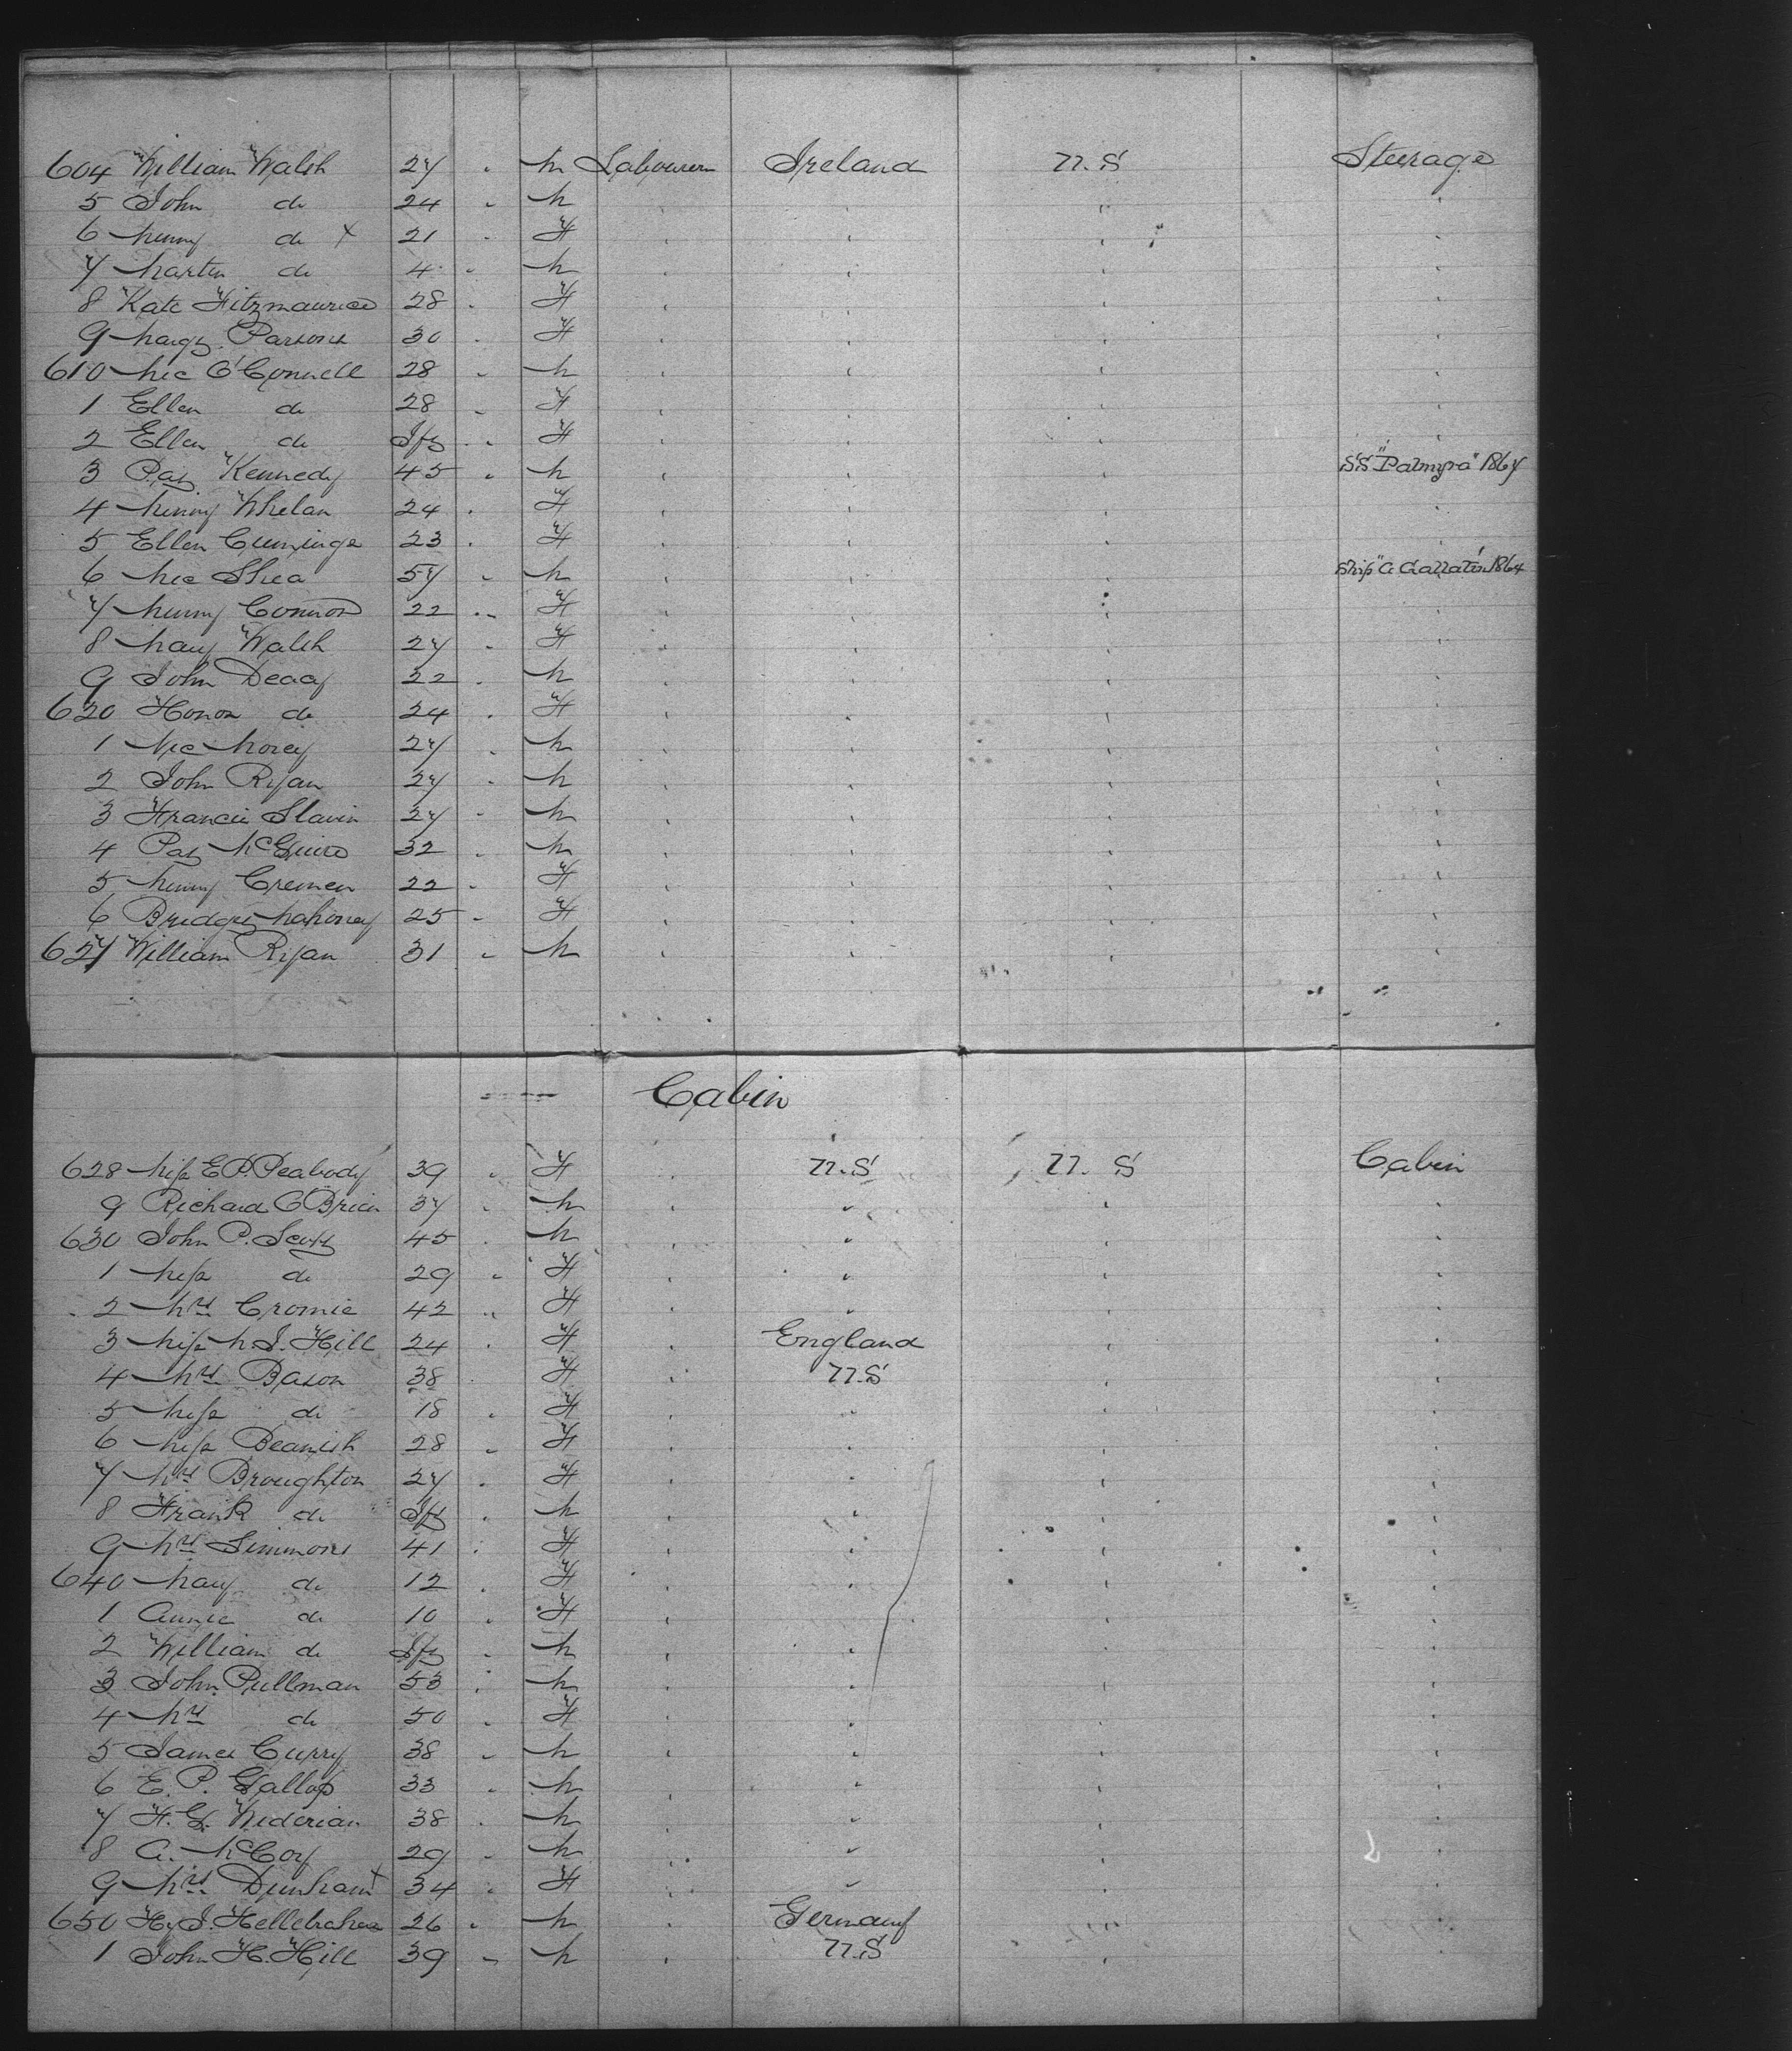 604 William Walsh 27 " M Labourer Ireland U.S Steerage
5 John do 24 " M " " " "
6 Minny do x 21 " F " " " "
7 Martin do 4 " M " " " "
8 Kate Fitzmaurice 28 " F " " " "
9 Margt Parsons 30 " F " " " "
610 Mic O'Connell 28 " M " " " "
1 Ellen do 28 " F " " " "
2 Ellen do Inft " F " " " "
3 Pat Kennedy 45 " M " " " SS "Palmyra" 1867
4 Minny Whelan 24 " F " " " "
5 Ellen Cumings 23 " F " " " "
6 Mic Shea 57 " M " " " Ship "A Gallatin" 1864
7 Minny Connor 22 " F " " " "
8 Mary Walsh 27 " F " " " "
9 John Deacy 32 " M " " " "
620 Honor do 24 " F " " " "
1 Mic Morey 27 " M " " " "
2 John Ryan 27 " M " " " "
3 Francis Slavin 27 " M " " " "
4 Pat McGuire 32 " M " " " "
5 Minny Cremen 22 " F " " " "
6 Bridget Mahoney 25 " F " " " "
627 William Ryan 31 " M " " " "
Cabin
628 Miss E P. Peabody 39 " F " U.S U.S Cabin
9 Richard O Brien 37 " M " " " "
630 John P. Scott 45 " M " " " "
1 Miss do 29 " F " " " "
2 Mrs Cromie 42 " F " " " "
3 Miss M. J. Hill 24 " F " England " "
4 Mrs Bason 38 F " U.S " "
5 Miss do 18 " F " " " "
6 Miss Beamish 28 " F " " " "
7 Mrs Broughton 27 " F " " " "
8 Frank do Inft " M " " " "
9 Mrs Simmons 41 " F " " " "
640 Mary do 12 " F " " " "
1 Annie do 10 " F " " " "
2 William do Inft " M " " " "
3 John Pullman 53 " M " " " "
4 Mrs do 50 " F " " " "
5 James Curry 38 " M " " " "
6 E. P. Gallop 33 " M " " " "
7 F. G. 38 " M " " " "
8 A. McCoy 29 " M " " " "
9 Mrs Dunham x 34 " F " " " "
650 Hy J. 26 " M " Germany " "
1 John H. Hill 39 " M " U.S " "